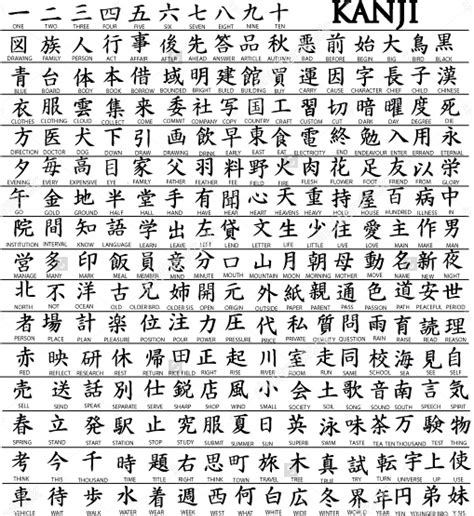 一 二 三 四 五 六 七 八 九 十 KANJI
ONE TWO THREE FOUR FIVE SIX SEVEN EIGHT NINE TEN
図 族 人 行 事 後 先 答 品 秋 悪 前 始 大 鳥 黒
DRAWING FAMILY PERSON GO AFFAIR AFTER AHEAD ANSWER ARTICLE AUTUMN BAD BEFORE BEGIN BIG BIRD BLACK
青 台 体 本 借 域 明 建 館 買 運 因 字 長 子 漢
BLUE BOARD BODY BOOK BORROW BOUNDED BRIGHT BUILD BUILDING BUY CARRY CAUSE CHARACTER CHIEF CHILD CHINESE
衣 服 雲 集 来 委 社 写 国 工 習 切 暗 曜 度 死
CLOTHES CLOTHING CLOUD COLLECT COME COMMIT COMPANY COPY COUNTRY CRAFT CUSTOM CUT DARK DAY DEGREE DIE
方 医 犬 下 引 画 飲 早 東 食 電 終 勉 入 用 永
DIRECTION DOCTOR DOG DOWN DRAW DRAWING DRINK EARLY EAST EAT ELECTRICITY END ENDEAVOUR ENTER ERRAND ETERNAL
夕 毎 高 目 家 父 羽 料 野 火 肉 花 足 友 以 学
EVENING EVERY EXPENSIVE EYE FAMILY FATHER FEATHER FEE FIELD FIRE FLESH FLOWER FOOT FRIEND
午 金 地 半 堂 手 有 心 天 重 持 屋 百 病 中
GO GOLD GROUND HALF HALL HAND HAVE HEAR HEART HEAVENS HEAVY HOLD HOUSE HUNDRED ILLNESS IN
院 間 知 語 学 出 左 文 生 少 住 愛 主 作 男
INSTITUTION INTERVAL KNOW LANGUAGE LEARN LEAVE LEFT LEND LETTER LIFE LITTLE LIVE LOVE MAIN MAKE MAN
営 多 印 飯 員 意 分 口 山 月 朝 母 動 名 新 夜
MANAGE MANY MARK MEAL MEMBER MIND MINUTE MOUTH MOUNTAIN MOON MORNING MOTHER MOVE NAME NEW NIGHT
北 不 洋 古 兄 姉 開 元 外 紙 親 通 色 道 安 世
NORTH NOT OCEAN OLD OLDER BRO. OLDER SIS. OPEN ORIGIN OUTSIDE PAPER PARENT PASS PASSION PATH PEACEFUL PERIOD
者 場 計 楽 位 注 力 圧 代 私 質 問 雨 育 読 理
PERSON PLACE PLAN PLEASURE POSITION POUR POWER PRESSURE PRICE PRIVATE QUALITY QUESTION RAIN RAISE READ REASON
赤 映 研 休 帰 田 正 起 川 室 走 同 校 海 見 自
RED REFLECT RESEARCH REST RETURN RICE FIELD RIGHT RISE RIVER ROOM RUN SAME SCHOOL SEA SEE SELF
売 送 話 別 仕 鋭 店 風 小 会 土 歌 音 南 言 気
SELL SEND SPEAK SEPARATE SERVE SHARP SHOP WIND SMALL SOCIETY SOIL SONG SOUND SOUTH SPEECH SPIRIT
春 立 発 駅 止 究 服 夏 日 英 泳 味 茶 万 験 物
SPRING STAND START STATION STOP STUDY SUBMIT SUMMER SUN SUPERB SWIM TASTE TEA TEN THOUSAND TEST THING
考 今 千 時 題 右 思 町 旅 木 真 試 転 宇 上 使
THINK THIS THOUSAND TIME TITLE RIGHT THOUGHT TOWN TRAVEL TREE TRUE TRY TURN UNIVERSE UP USE
車 待 歩 水 昼 着 週 西 何 白 窓 女 冬 円 年 弟 妹
VEHICLE WAIT WALK WATER WEEK WEST WHAT WHITE WINDOW WOMAN WINTER YEN YEAR YOUNGER BRO.